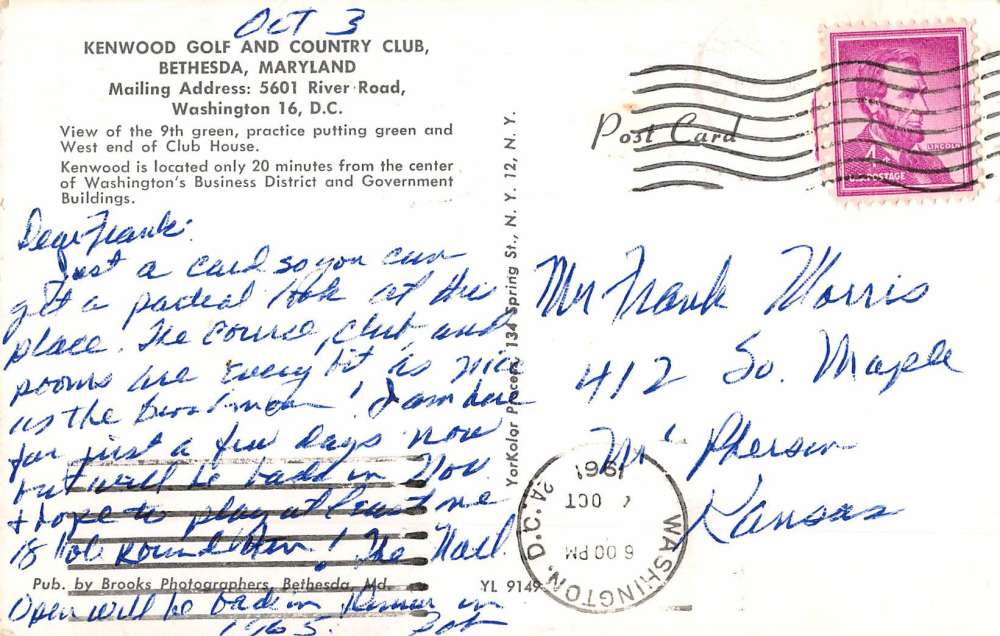 Oct 3
KENWOOD GOLF AND COUNTRY CLUB,
BETHESDA, MARYLAND
Mailing Address: 5601 River Road,
Washington 16, D.C.
View of the 9th green, practice putting green and
West end of Club House.
Kenwood is located only 20 minutes from the center
of Washington's Business District and Government
Buildings.
Dear Frank:
Just a card so you can
get a partial look at this
place. The course, club, and
rooms are every bit as nice
as the Broadmoor! I am here
for just a few days now
but will be back in Nov.
& hope to play at least one
18 hole round then! The Natl
Pub. by Brooks Photographers, Bethesda, Md.
Open will be back in in
1965. Bob
YorKolor Process, 134 Spring St., N. Y. 12, N. Y.
YL 9149
Post Card
LINCOLN
U.S. POSTAGE
Mr Frank Morris
412 So. Maple
Mc Pherson
Kansas
WASHINGTON, D.C.
6 00 PM
OCT
1961